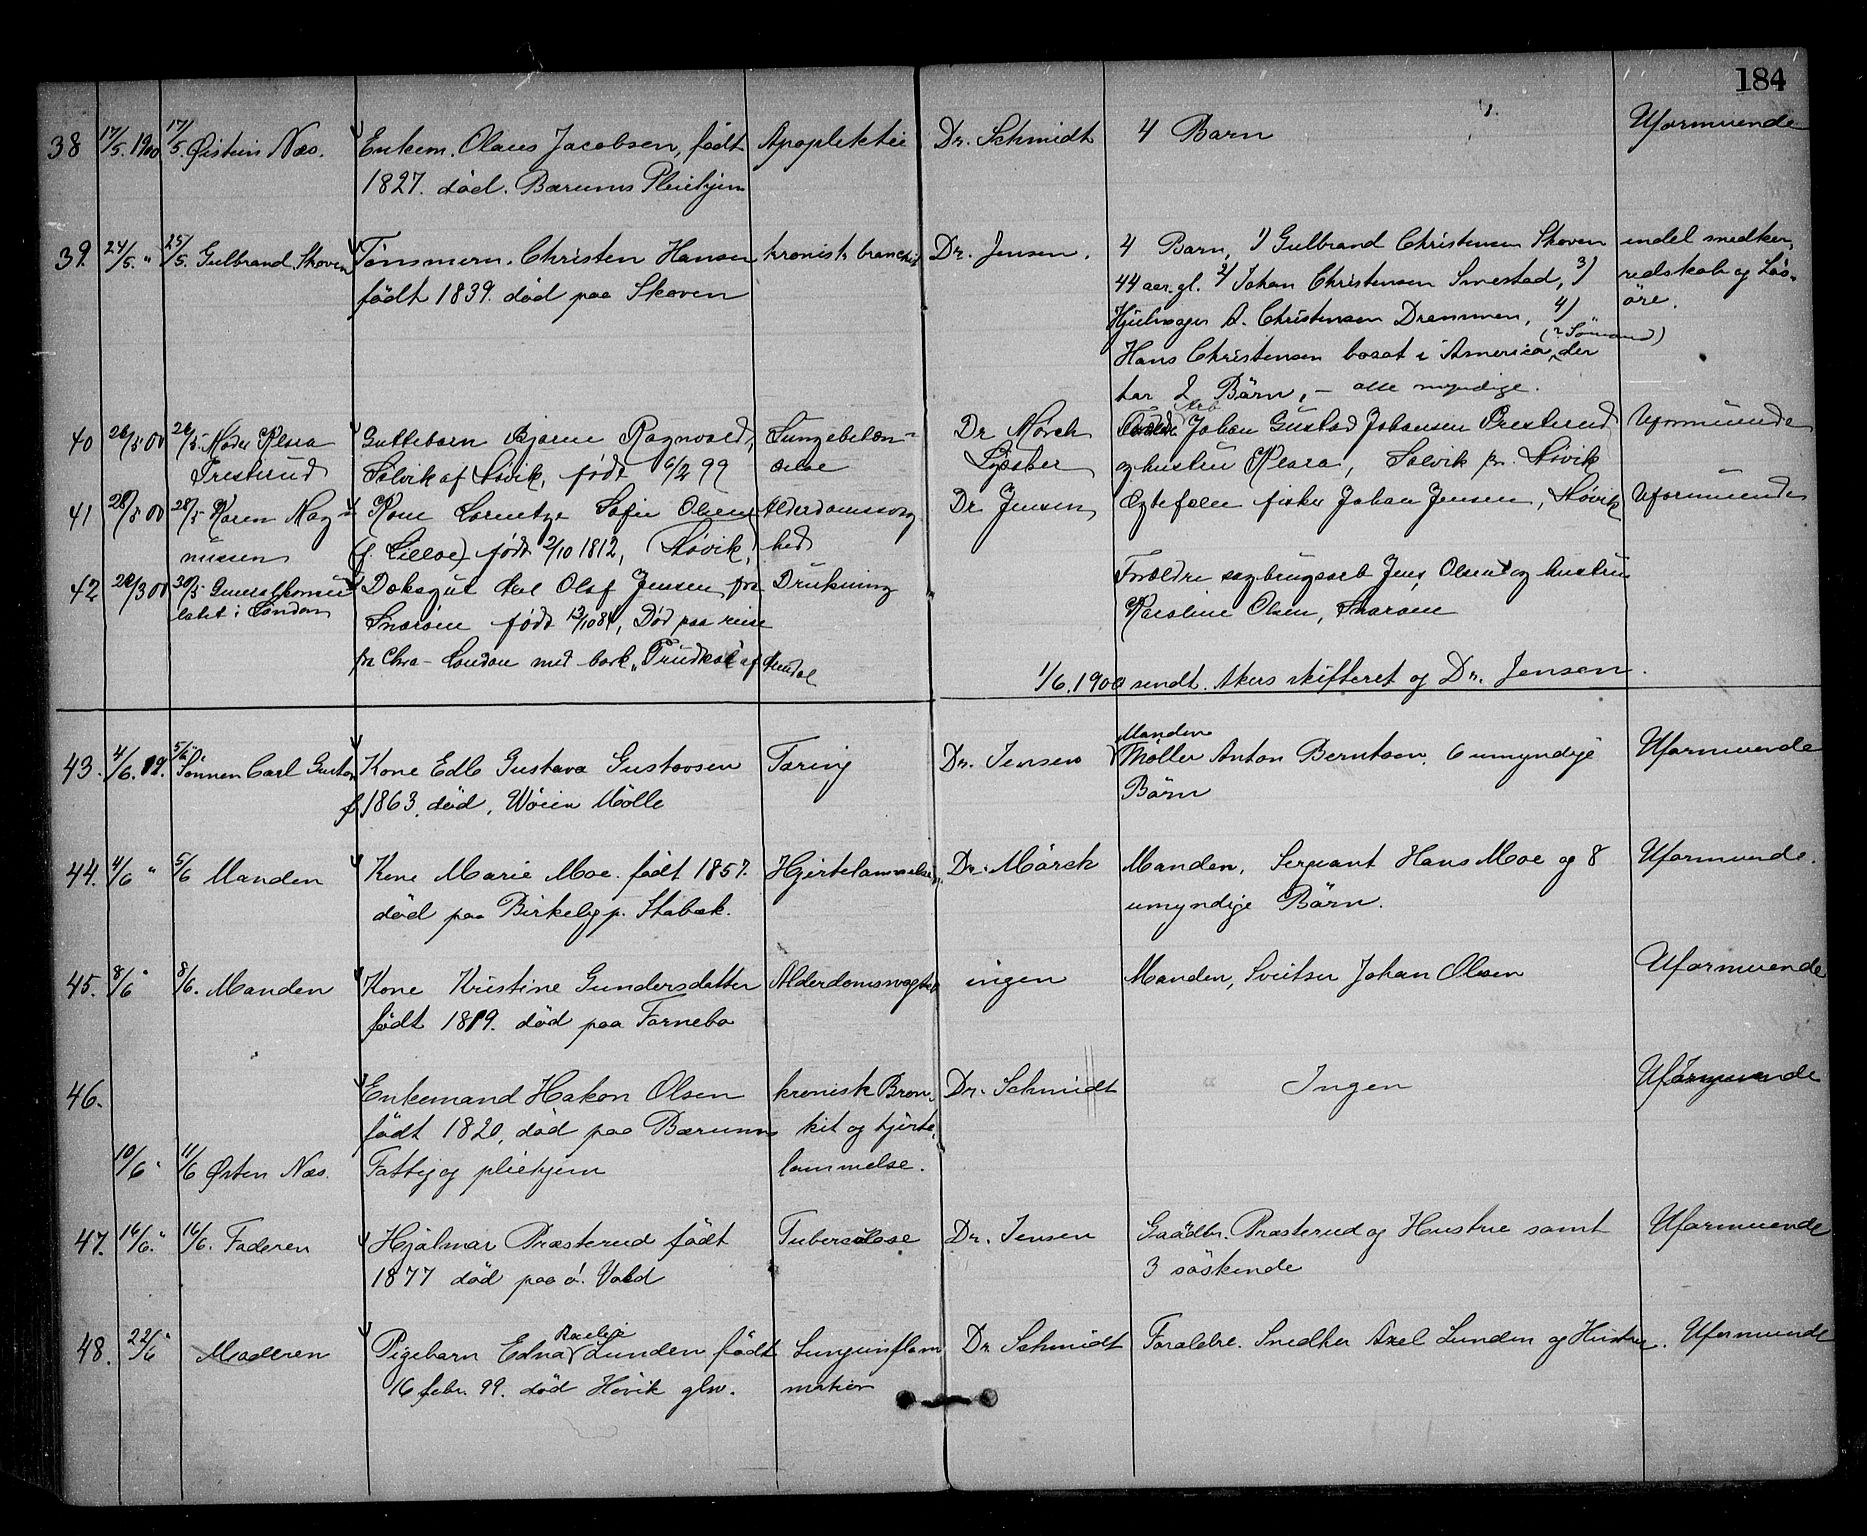 184
38 17/5. 1900 17/5. Øistein Næs. Enkem. Olaus Jacobsen, født Apoplektii Dr. Schmidt 4 Barn Uformuende
1827. død. Bærums Pleiehjem
39. 24/5. " 25/5. Gulbrand Skoven Tønsmern. Christen Hansen kronisk bronchit Dr. Jensen. 4 Barn, 1) Gulbrand Christensen Skoven endel snedker,
født 1839. død paa Skoven 44 aar. gl. 2) Johan Christensen Smestad, 3) redskab og Lös-
Hjulmager A. Christensen Drammen, 4) öre.
(? Sömand)
Hans Christensen bosat i America, der
har 2 Börn, - alle myndige.
40 26/5 00 26/5. Moder Klara Guttebarn Bjarne Ragnvald, Lungebetæn- Dr Mörch Arb Johan Gustad Johansen Presterud Uformuende
Presterud Solvik af Høvik, født 6/2 99 delse Lysaker og hustru Klara, Solvik pr. Høvik
41 28/5 00 28/5 Karen Mag Kone Lorentze Sofie Olsen Alderdomssvag Dr Jensen Ægtefælle fisker Johan Jensen, Høvik Uformuende
nussen (f. Lilloe) født 2/10 1812, Høvik, hed
42 22/3 00 30/5 Generalkonsu Dæksgut Karl Olaf Jensen fra Drukning Forældre sagbrugsarb Jens Olsen og hustru
latet i London Snarøen født 13/10 84, Død paa reise Karoline Olsen, Snarøen
fra Chra - London med bark "Trudvas" af Arendal
1/6. 1900 sendt Akers skifteret og Dr. Jensen.
43. 4/6. 19. 5/6 Sönnen Carl Gustav Kone Edle Gustava Gustavsen Tæring Dr. Jensen Manden Møller Anton Berntsen, 6 umyndige Uformuende
f. 1863. død, Wöien Mölle Börn
44. 4/6 " 5/6 Manden Kone Marie Moe. født 1857. Hjertelammelse Dr. Mörch Manden, Sergeant Hans Moe og 8 Uformuende.
død paa Birkeby p. Stabæk. umyndige Börn.
45. 8/6 " 8/6. Manden Kone Kristine Gundersdatter Alderdomssvaghed ingen Manden, Sveitser Johan Olsen Uformuende
født 1819. død paa Fornebo
46. Enkemand Hakon Olsen kronisk Bron- Dr. Schmidt Ingen Uformuende
født 1820, død paa Bærums kit og hjerte,
10/6 " 11/6 Østen Næs. Fattig og pleiehjem lammelse.
47. 16/6. " 16/6. Faderen Hjalmar Præsterud født Tuberculose Dr. Jensen Gaardbr. Præsterud og Hustru samt Uformuende
1877 død paa ö. Vold 3 söskende
48. 22/6 " Moderen Pigebarn Edna Lunden født Lungeinflam Dr Schmidt Forældre. Snedker Axel Lunden og Hustru. Uformuende
16 febr. 99. død Høvik glv. mation